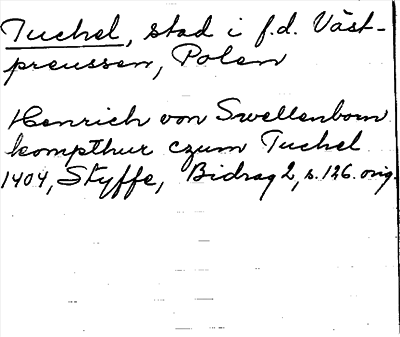 Tuchel, stad i f.d. Väst-
preussen, Polen
Henrich von Swellenborn
kompthur czum Tuchel
1404, Styffe, Bidrag 2, s. 126. orig.